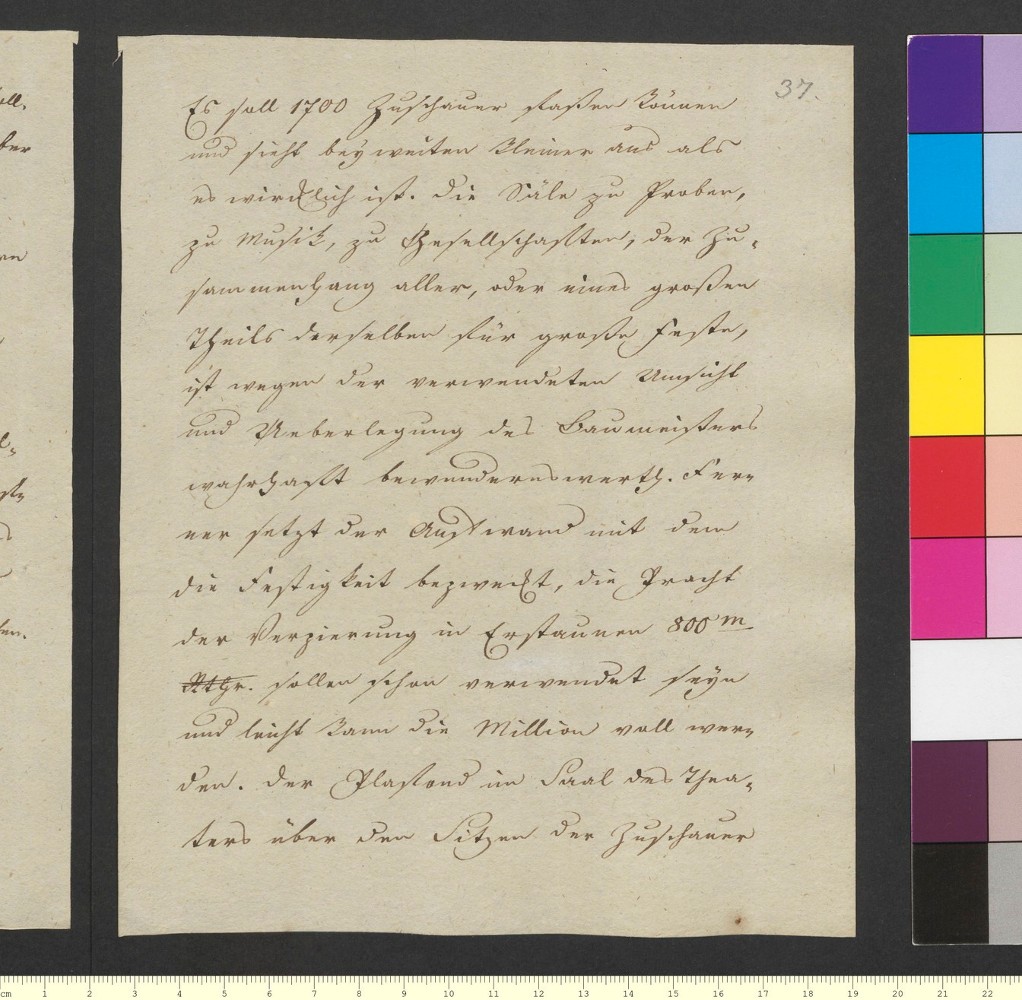 37.
Es soll 1700 Zuschauer faßen können
und sieht bey weiten kleiner aus als
es wircklich ist. Die Säle zu Proben,
zu Musik, zu Gesellschafften, der Zu-
sammenhang aller, oder eines großen
Theils derselben für große Feste,
ist wegen der verwendeten Umsicht
und Ueberlegung des Baumeisters
wahrhafft bewundernswerth. Fer-
ner setzt der Aufwand mit dem
die Festigkeit bezweckt, die Pracht
der Verzierung in Erstaunen 800 m
Rthr. sollen schon verwendet seyn
und leicht kann die Million voll wer-
den. Der Plafond im Saal des Thea-
ters über den Sitzen der Zuschauer